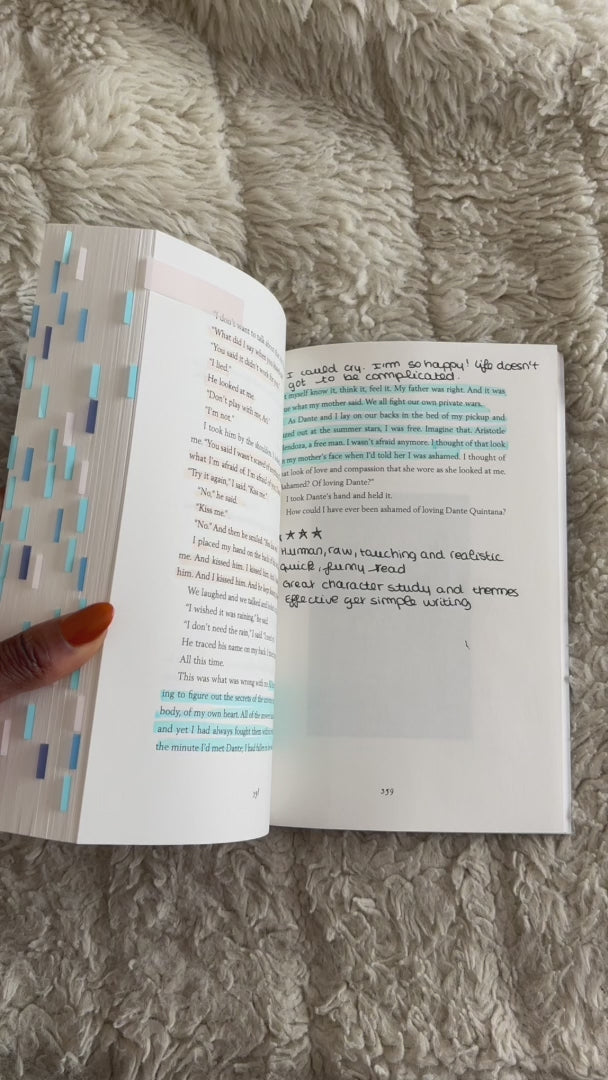 "I don't want to talk about
"What did I say when you
"You said it didn't work
"I lied."
He looked at me.
"Don't play with me, Ari."
"I'm not."
I took him by the shoulders
me. "You said I wasn't scared of
what I'm afraid of. I'm afraid of
"Try it again," I said. "Kiss me."
"No," he said.
"Kiss me."
"No." And then he smiled.
I placed my hand on the back of
me. And kissed him. I kissed him. And
him. And I kissed him. And he kept
We laughed and we talked and
"I wished it was raining," he said.
"I don't need the rain," I said. "I need
He traced his name on my back
All this time.
This was what was wrong with me.
ing to figure out the secrets of the universe
body, of my own heart. All of the answers
and yet I had always fought them
the minute I'd met Dante, I had fallen
I could cry. I'm so happy! life doesn't
got to be complicated.
myself know it, think it, feel it. My father was right. And it was
what my mother said. We all fight our own private wars.
As Dante and I lay on our backs in the bed of my pickup and
out at the summer stars, I was free. Imagine that. Aristotle
Mendoza, a free man. I wasn't afraid anymore. I thought of that look
my mother's face when I'd told her I was ashamed. I thought of
that look of love and compassion that she wore as she looked at me.
Ashamed? Of loving Dante?"
I took Dante's hand and held it.
How could I have ever been ashamed of loving Dante Quintana?
★★★
Human, raw, touching and realistic
quick, funny read
Great character study and themes
Effective yet simple writing
359